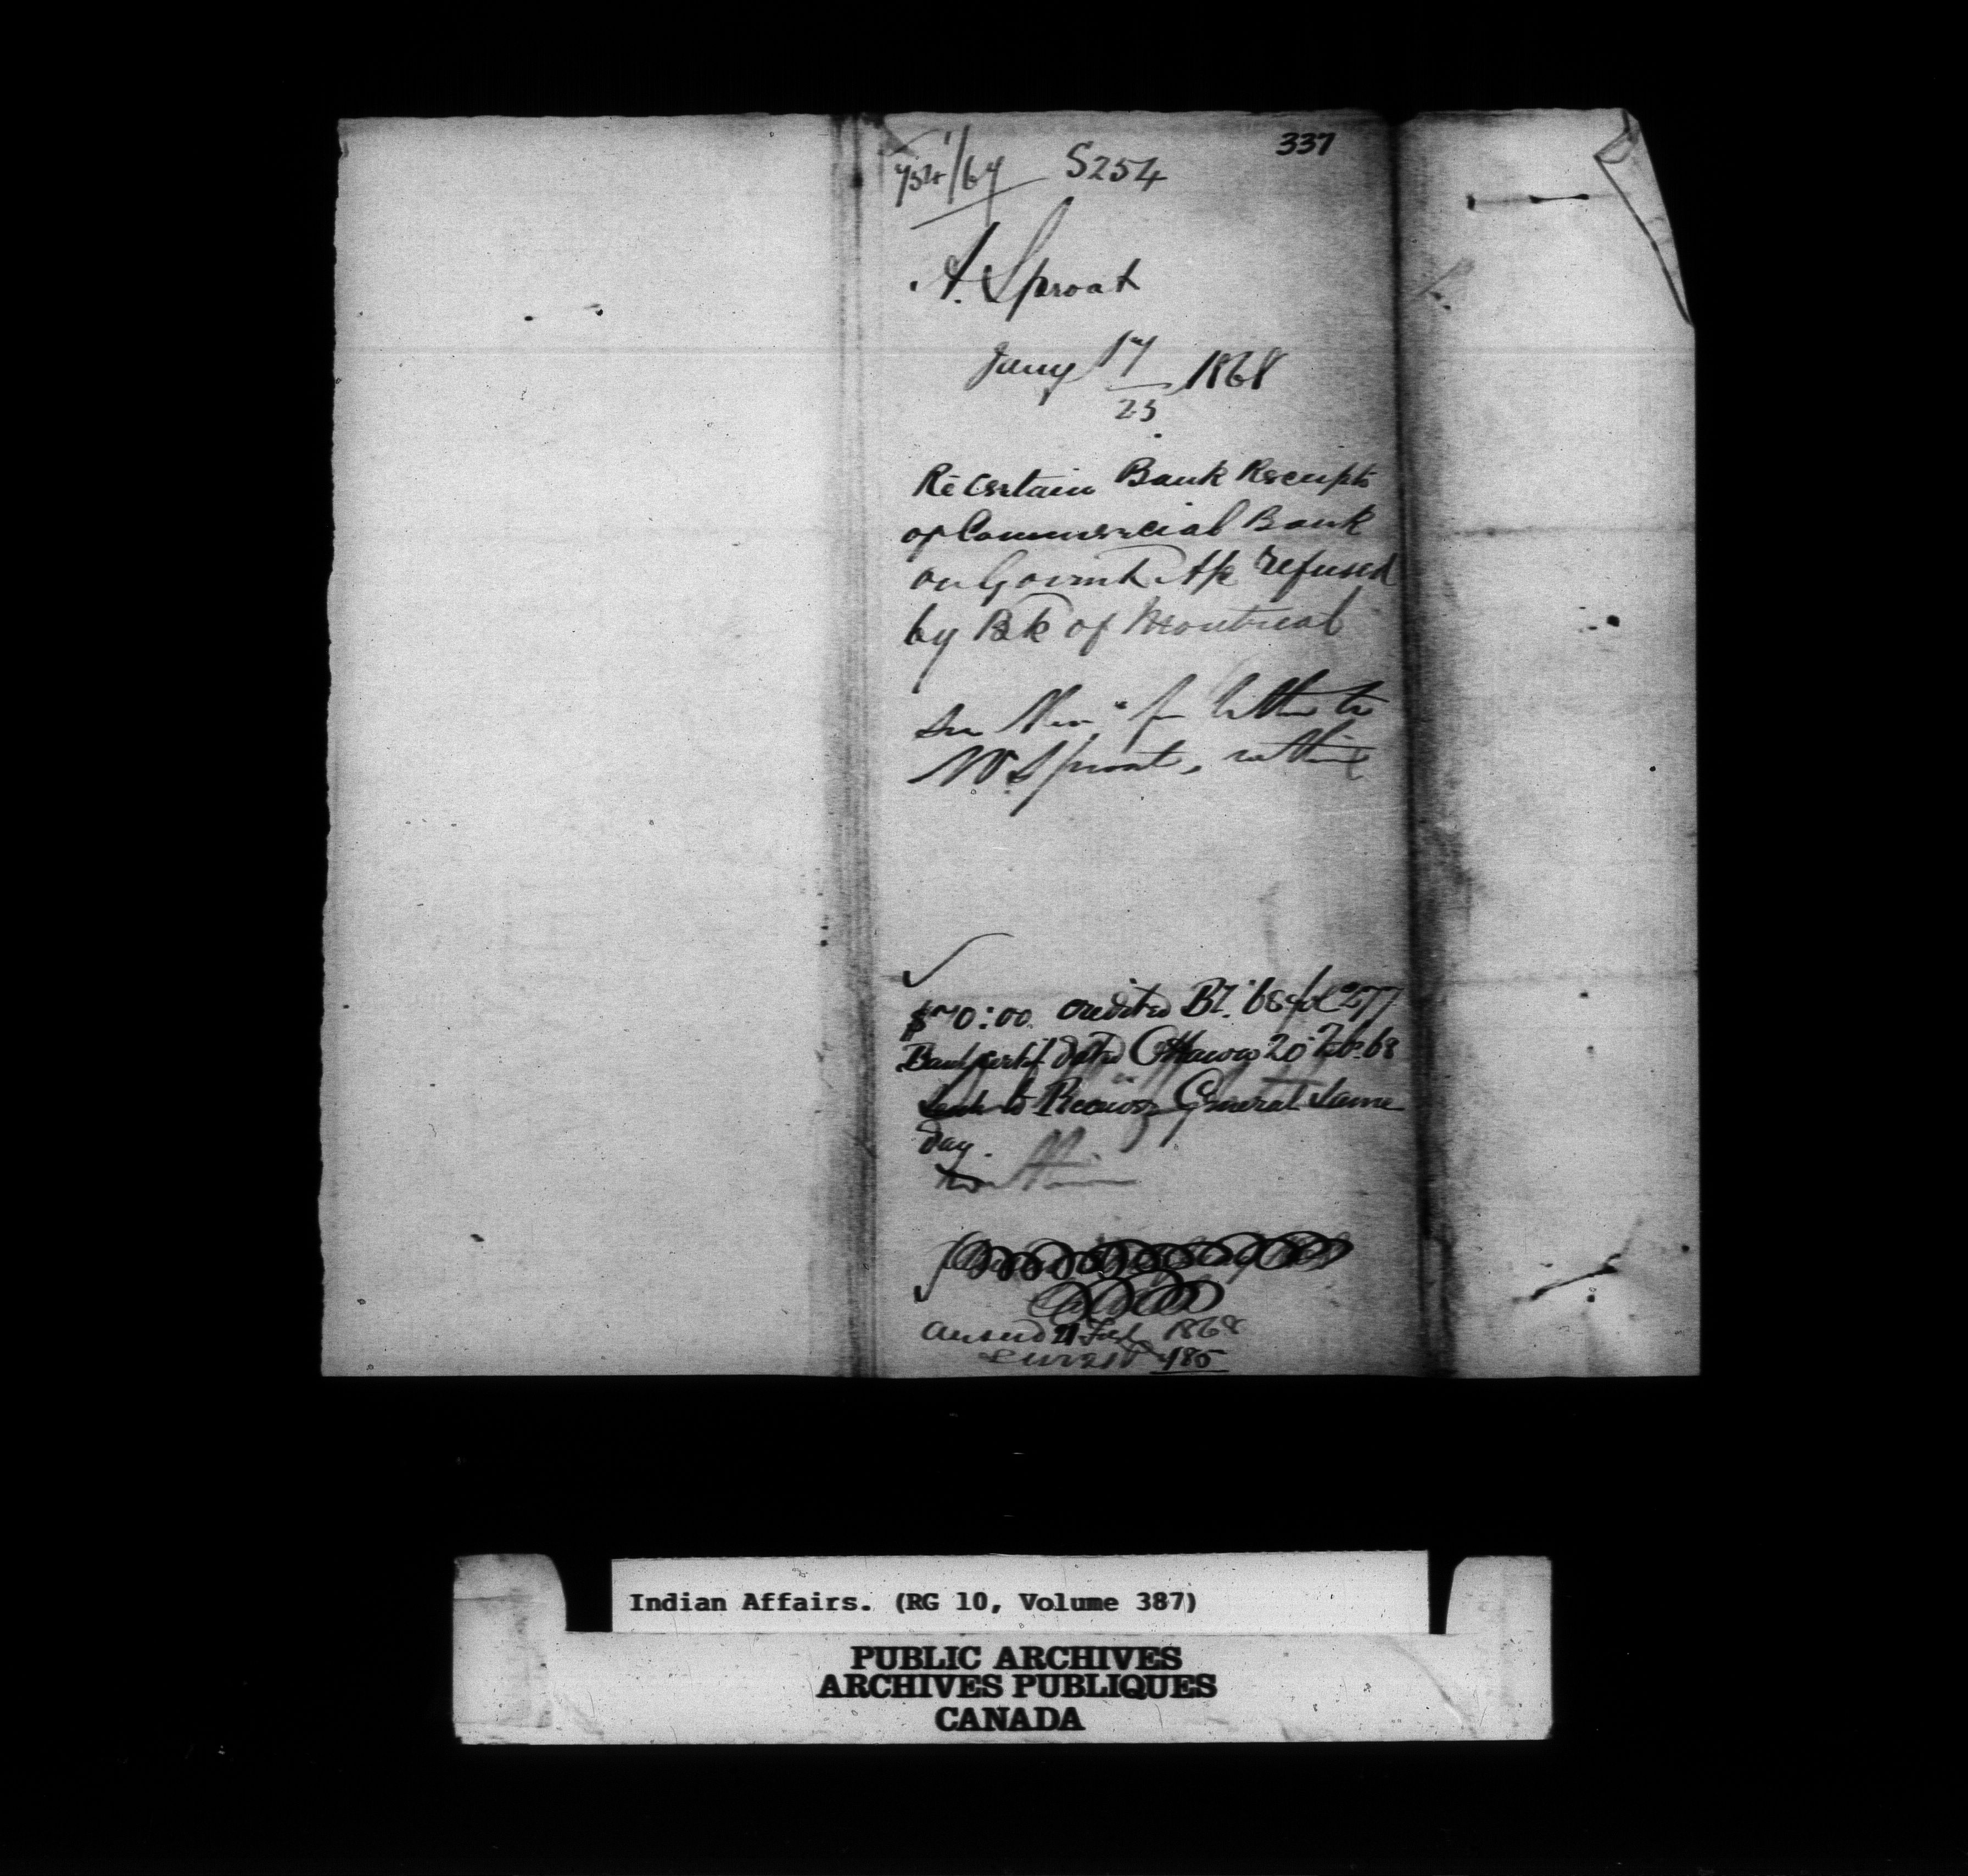 337
S254
A. Sproat
Jany 17/25 1868
Re Certain Bank Receipts
of Commercial Bank
on Govrmt A/c refused
by Bk of Montreal
See Mem° for letter to
Mr Sproat, within
$70:00 credited 68 fol 277
Bank certif. dated Ottawa 20 Feb. 68
sent to Receiver General same
day.
Ansered 21 Feb 1868
485
Indian Affairs. (RG 10, Volume 387)
PUBLIC ARCHIVES
ARCHIVES PUBLIQUES
CANADA